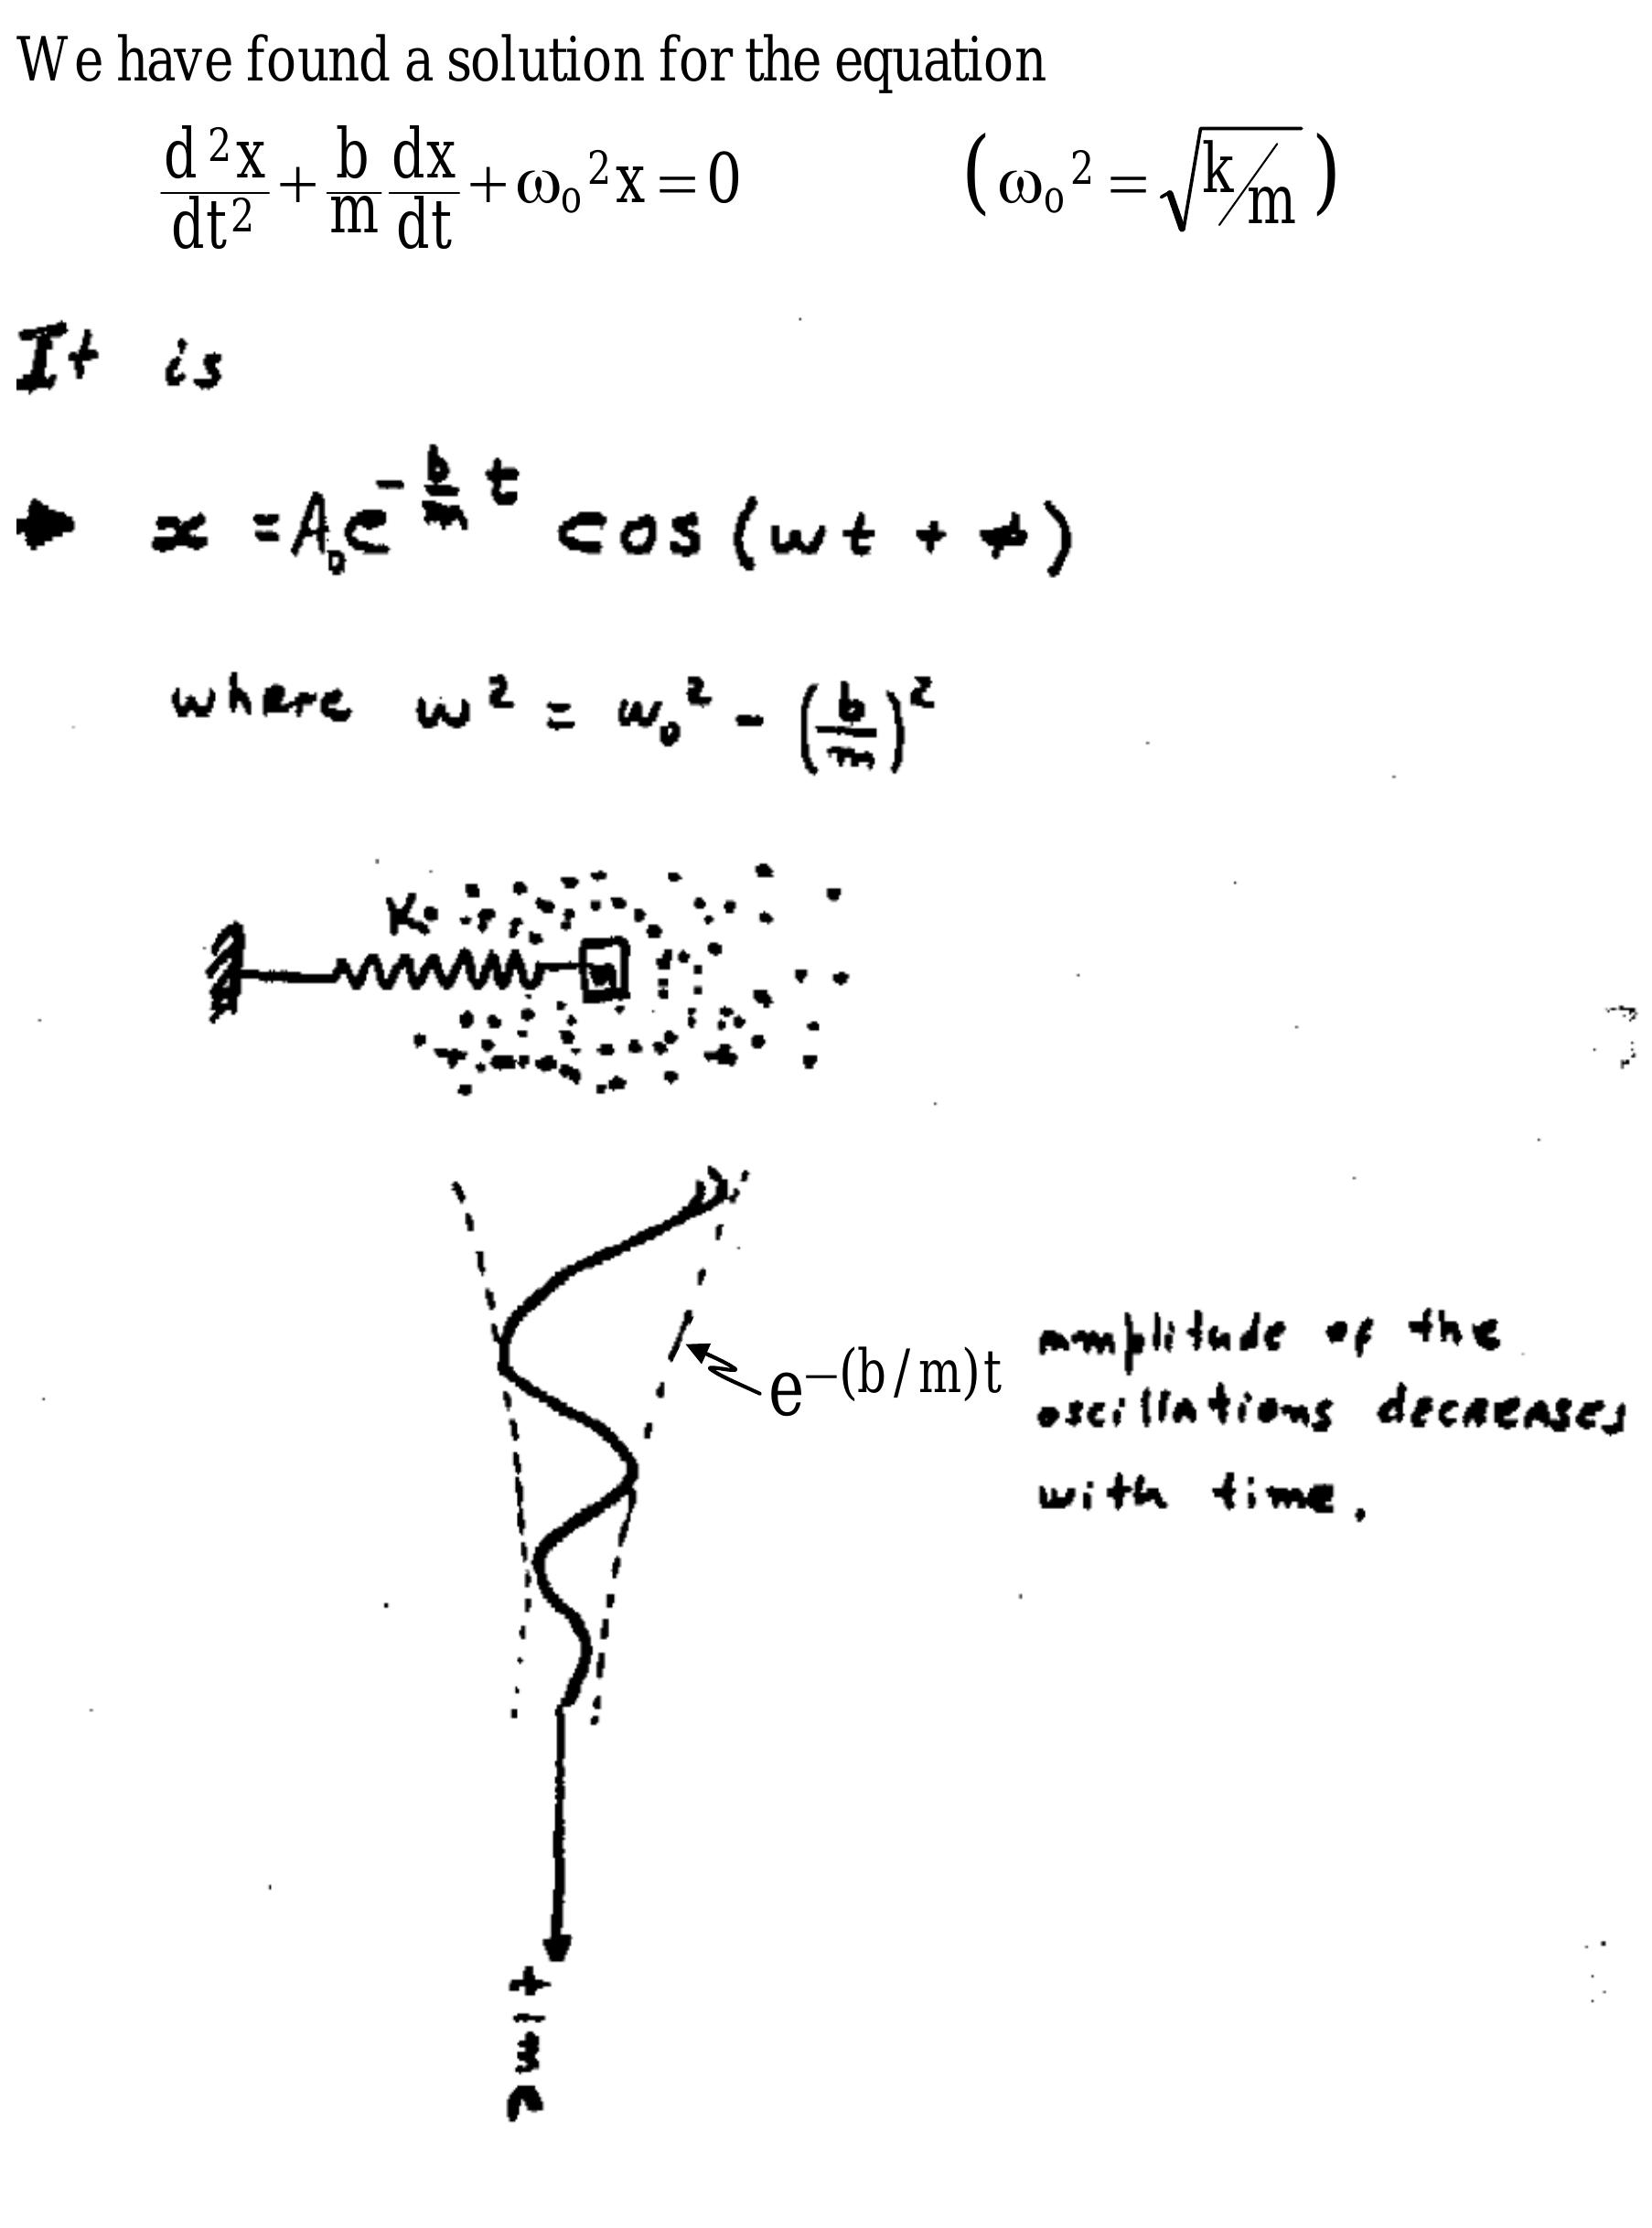 We have found a solution for the equation
d²x/dt² + b/m dx/dt + ω₀²x = 0 (ω₀² = √k/m)
It is
x = A₀e^(-b/m t) cos(wt + ϕ)
where w² = w₀² - (b/m)²
K
m
e^−(b/m)t
amplitude of the
oscillations decreases
with time.
time